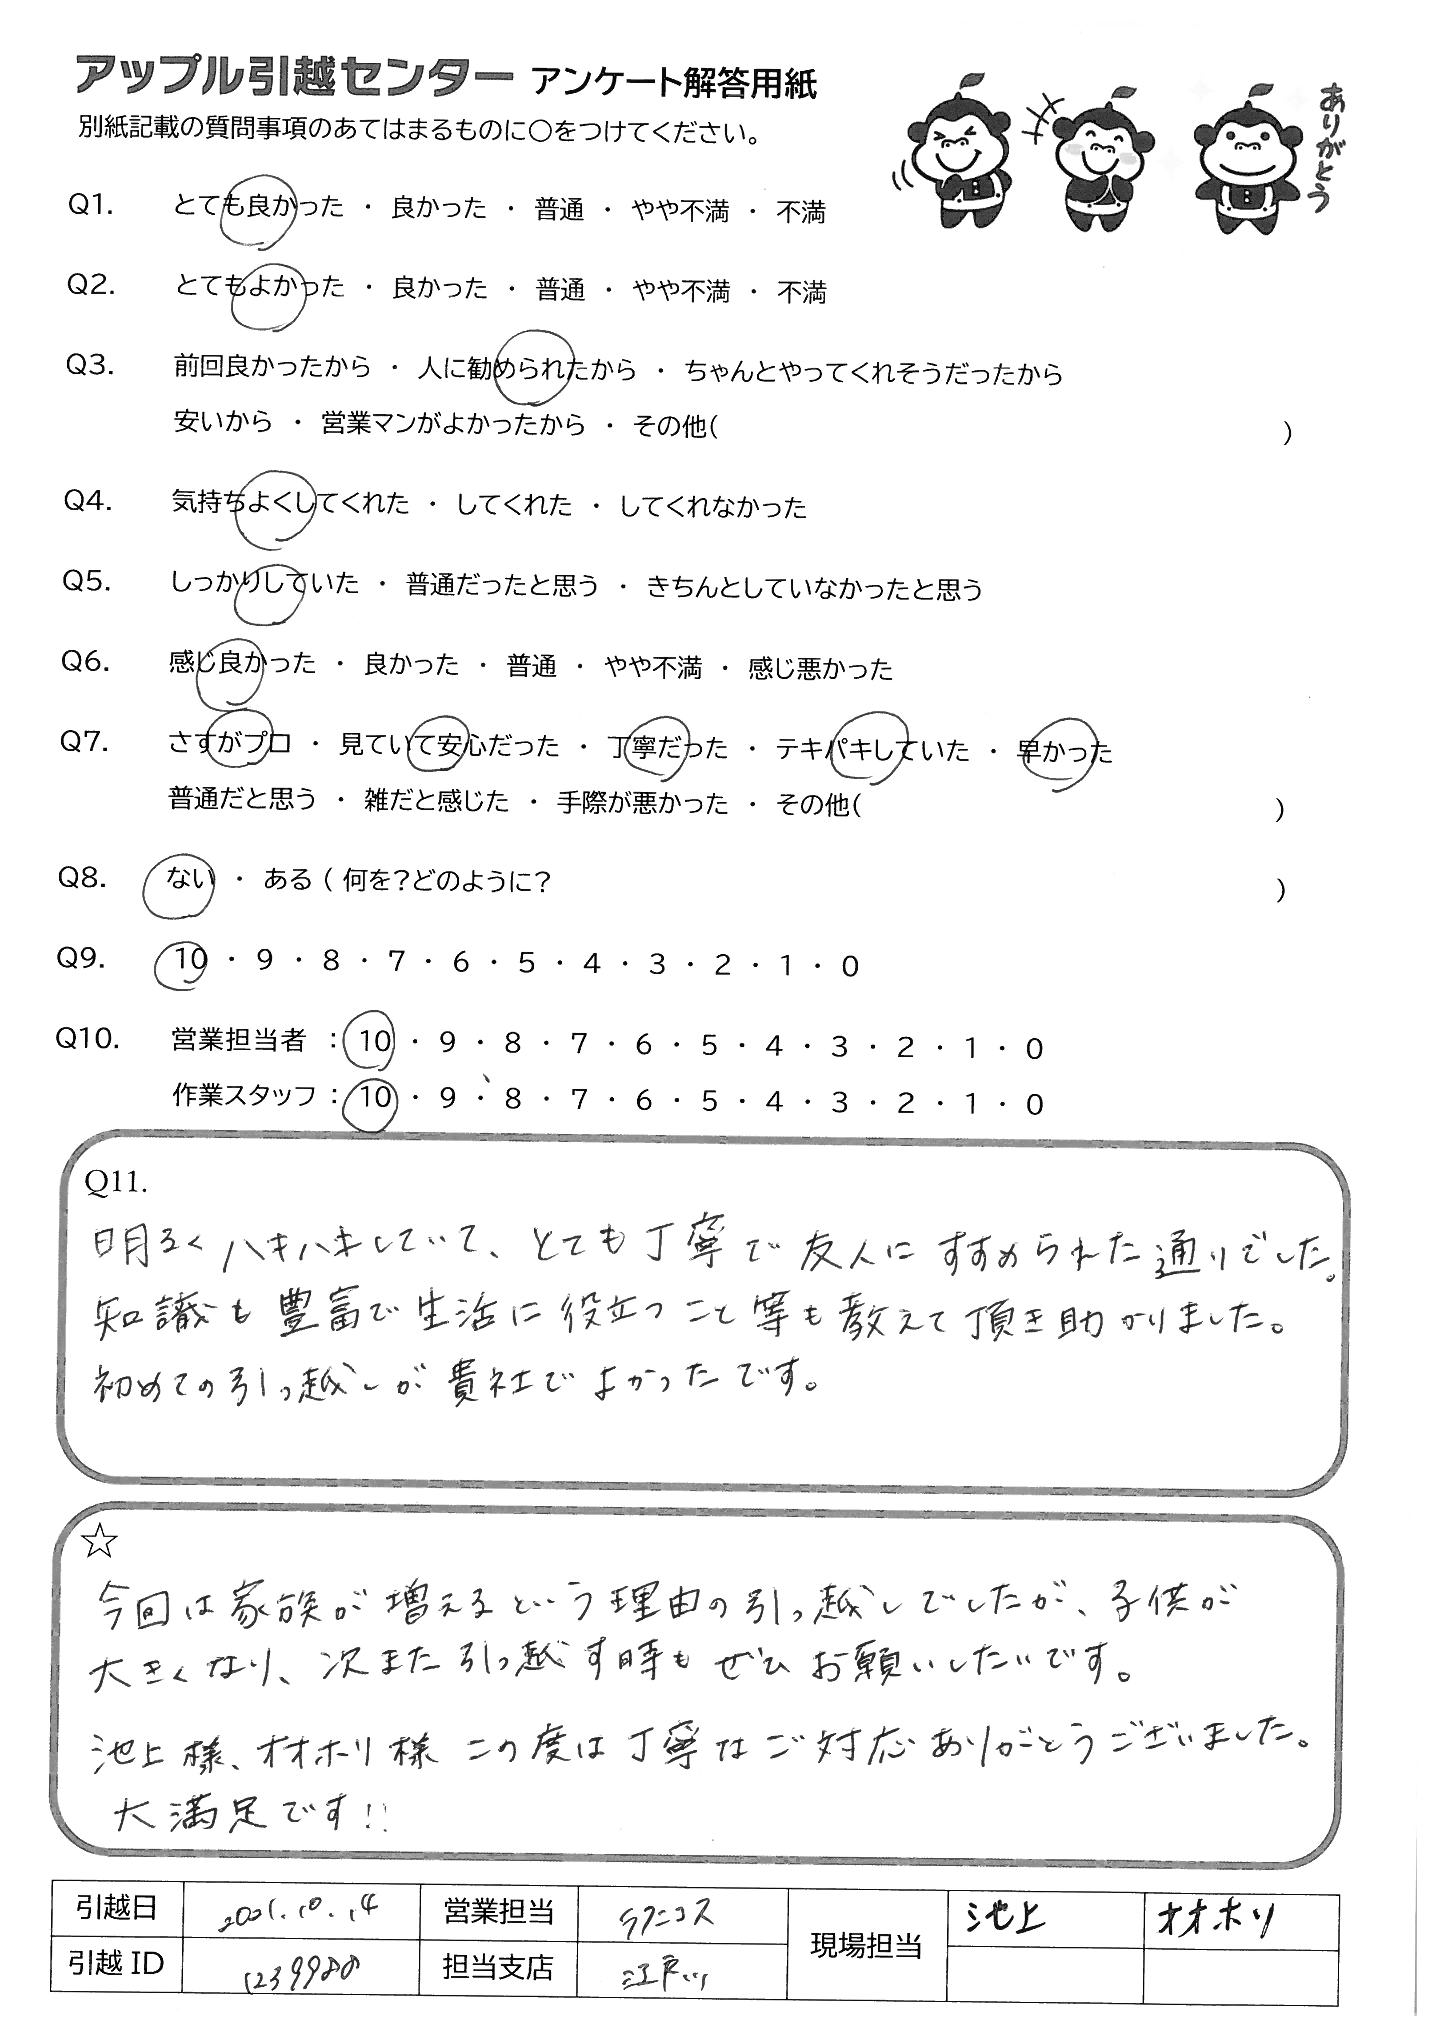 アップル引越センター アンケート解答用紙
別紙記載の質問事項のあてはまるものに○をつけてください。
ありがとう
Q1. とても良かった ・ 良かった ・ 普通 ・ やや不満 ・ 不満
Q2. とてもよかった ・ 良かった ・ 普通 ・ やや不満 ・ 不満
Q3. 前回良かったから ・ 人に勧められたから ・ ちゃんとやってくれそうだったから
安いから ・ 営業マンがよかったから ・ その他( )
Q4. 気持ちよくしてくれた ・ してくれた ・ してくれなかった
Q5. しっかりしていた ・ 普通だったと思う ・ きちんとしていなかったと思う
Q6. 感じ良かった ・ 良かった ・ 普通 ・ やや不満 ・ 感じ悪かった
Q7. さすがプロ ・ 見ていて安心だった ・ 丁寧だった ・ テキパキしていた ・ 早かった
普通だと思う ・ 雑だと感じた ・ 手際が悪かった ・ その他( )
Q8. ない ・ ある ( 何を?どのように? )
Q9. 10 ・ 9 ・ 8 ・ 7 ・ 6 ・ 5 ・ 4 ・ 3 ・ 2 ・ 1 ・ 0
Q10. 営業担当者 : 10 ・ 9 ・ 8 ・ 7 ・ 6 ・ 5 ・ 4 ・ 3 ・ 2 ・ 1 ・ 0
作業スタッフ : 10 ・ 9 ・ 8 ・ 7 ・ 6 ・ 5 ・ 4 ・ 3 ・ 2 ・ 1 ・ 0
Q11.
明るくハキハキしていて、とても丁寧で友人にすすめられた通りでした。
知識も豊富で生活に役立つこと等も教えて頂き助かりました。
初めての引っ越しが貴社でよかったです。
☆
今回は家族が増えるという理由の引っ越しでしたが、子供が
大きくなり、次また引っ越す時もぜひお願いしたいです。
池上様、オオホリ様 この度は丁寧なご対応ありがとうございました。
大満足です!!
引越日 2021.10.14 営業担当 現場担当 池上 オオホリ
引越ID 1239988 担当支店 江戸川